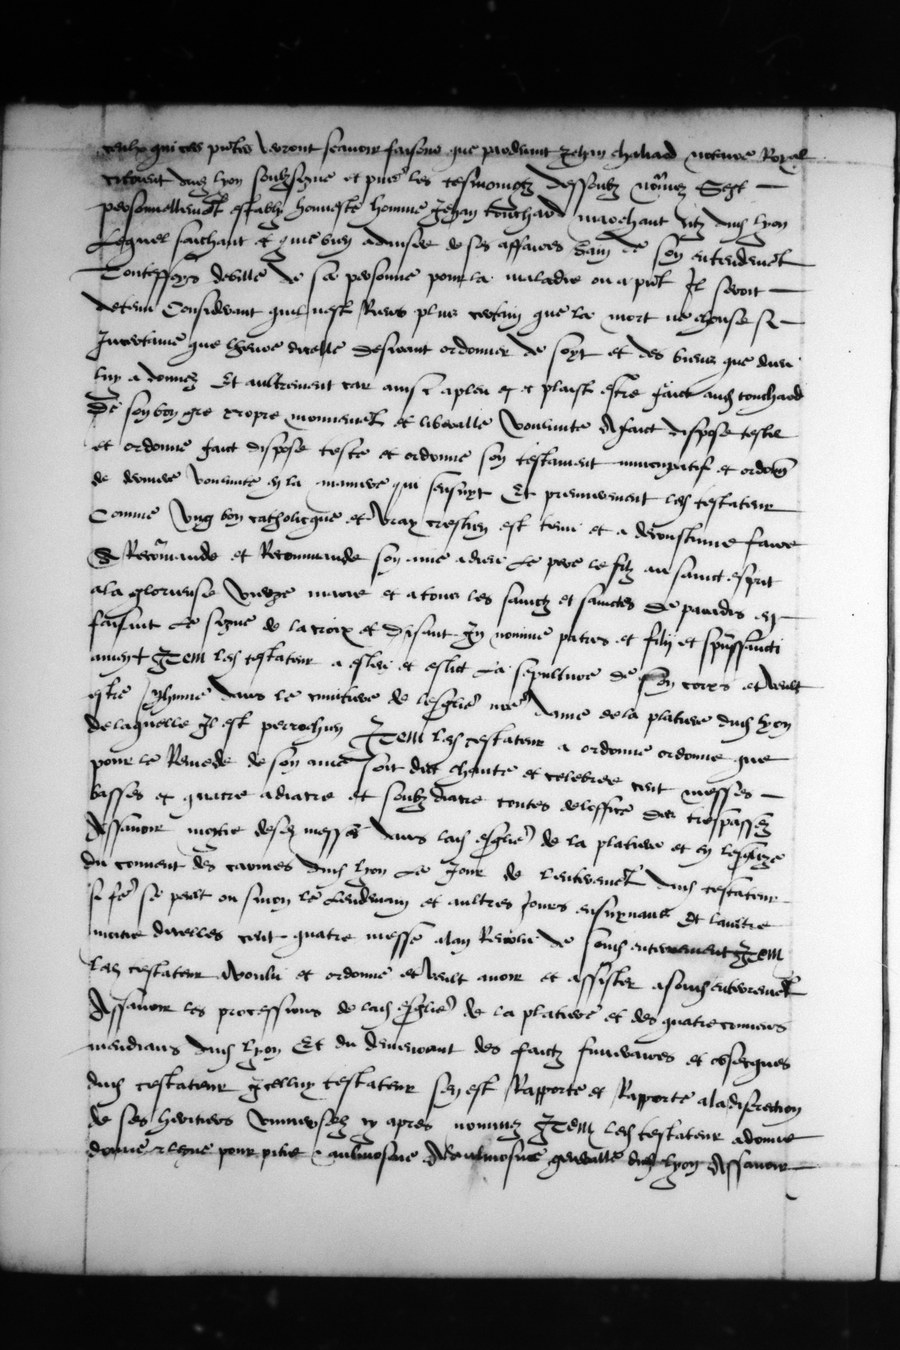 ceulx qui ces pntes verront scavoir faisons que pardevant Jehan chaliard notaire Royal
citoien dud lyon soubzsigne et pnts les tesmoingtz dessoubz nommez Sest
personnellement estably honneste homme Jehan touchard marchant citz dud lyon
Lequel saichant et que bien advise de ses affaires Sain de son entendement
de sa personne pour la maladie ou a pnt Il seroit
detenu Considerant quil nest Riens plus certain que la mort ne chouse si
Incertaine que lheure dicelle desirant ordonner de soyt et des biens que dieu
luy a donnez Et aultrement car ainsi a pleu et plaist estre faict aud touchard
De son bon gre propre mouvement et liberalle voulunte A faict dispose teste
et ordonne faict dispose teste et ordonne son testament nuncupatif et ordon
de derniere voulunte en la maniere qui sensuyt Et premierement led testateur
Comme Ung bon catholicque et vray crestien est tenu et a de coustume faire
Recommande et Recommande son ame a dieu Le pere le filz au sainct esprit
a la glorieuse vierge marie et a tous les sainctz et sainctes de paradis en
faisant Le signe de la croix et disant In nomine patris et filii et spirssancti
amen + Item led testateur a esleu et eslict La sepulture de son corps et veult
estre Inhume dans le cimitiere de lesglise nre dame de la platiere dud lyon
de laquelle Il est perrochien Item led testateur a ordonne ordonne que
pour le Remede de son ame soit dict chante et celebree cent messes
basses et quatre a diacre et soubzdiacre toutes de loffice des trespassez
Assavoir moitie desd messes dans lad esglise de la platiere et en lesglize
du couvent des carmes dud lyon Le Jour de lenterrement dud testateur
si fe se peult ou sinon le lendemain et aultres Jours ensuyvans Et laultre
moitie dicelles cent quatre messe a lan Revolu de sond enterrement Item
led testateur a voulu et ordonne et veult avoir et assister a sond enterrement
Assavoir les processions de lad esglise de la platiere et des quatre couvens
mendians dud lyon Et du demeurant des faictz funeraires et obseques
dud testateur Icelluy testateur sen est Rapporte et Rapporte a la discretion
de ses heritiers universelz cy apres nommez Item led testateur a donne
donne et legue pour pitie et aulmosne A laulmosne generalle dud lyon Assavoir